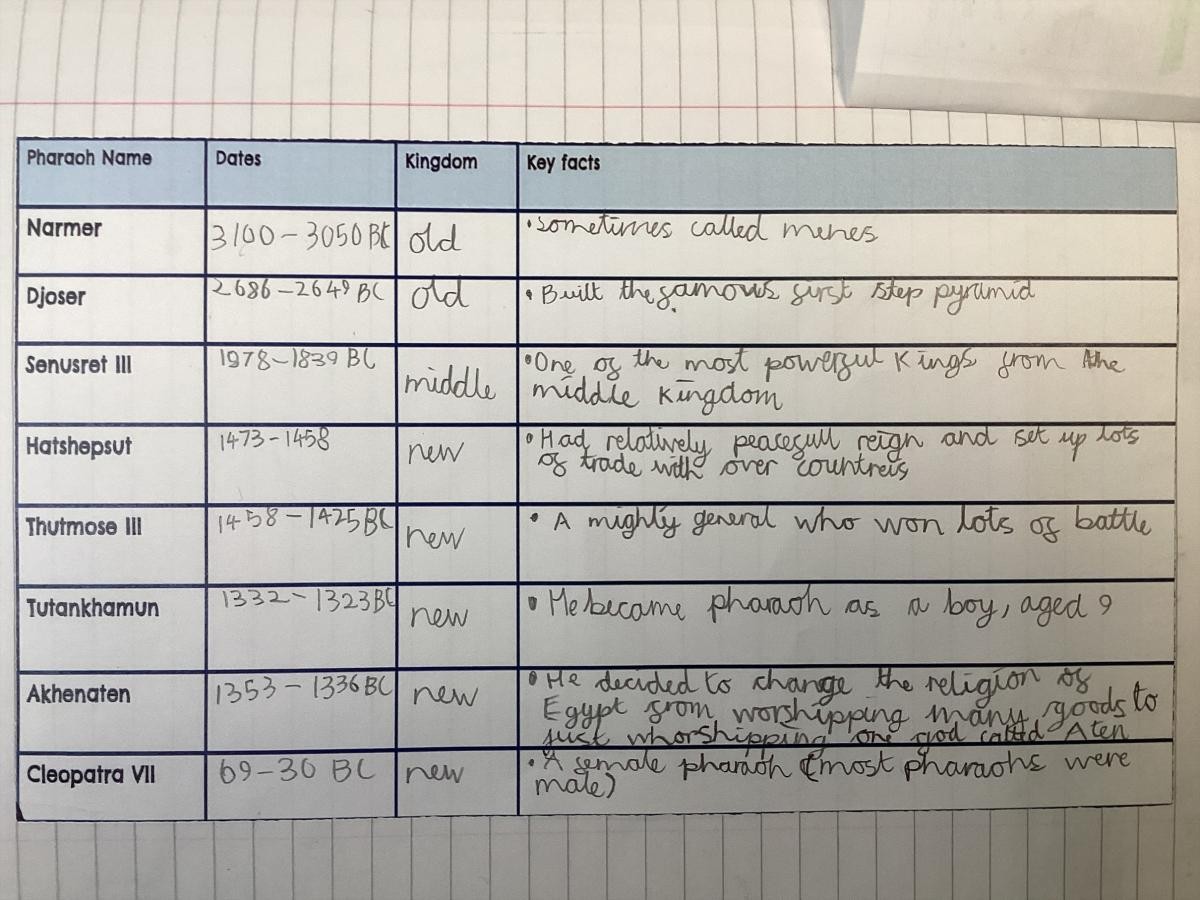 Pharaoh Name Dates Kingdom Key facts
Narmer 3100 - 3050 BC old • sometimes called menes
Djoser 2686 - 2649 BC old • Built the famous first step pyramid
Senusret III 1978 - 1839 BC middle • One of the most powerful Kings from the
middle Kingdom
Hatshepsut 1473 - 1458 new • Had relatively peacefull reign and set up lots
of trade with over countreis
Thutmose III 1458 - 1425 BC new • A mighty general who won lots of battle
Tutankhamun 1332 - 1323 BC new • He became pharaoh as a boy, aged 9
Akhenaten 1353 - 1336 BC new • He decided to change the religion of
Egypt from worshipping many goods to
just whorshipping one god called Aten
Cleopatra VII 69 - 30 BC new • A female pharaoh (most pharaohs were
male)